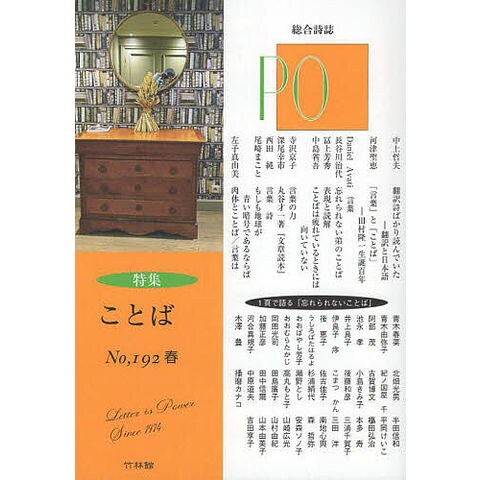 総合詩誌
PO
中上哲夫　翻訳詩ばかり読んでいた
―翻訳と日本語
河津聖恵　「言葉」と「ことば」
―田村隆一生誕百年
Daniel Avati　言葉
長谷川治代　忘れられない弟のことば
冨上芳秀　表現と読解
中島省吾　ことばは疲れているときには
向いていない
寺沢京子　言葉の力
深尾幸市　丸谷才一著『文章読本』
西田純　言葉 詩
尾崎まこと　もしも地球が
青い暗号であるならば
左子真由美　肉体とことば／言葉は
特集
ことば
No,192 春
Letter is Power
Since 1974
1頁で語る「忘れられないことば」
青木春菜
青木由弥子
阿部茂
池永孝
井上良子
伊良子序
後恵子
うしろばたはるよ
おおばやし芳子
おおむらたかじ
岡田光司
加藤正彦
河合真規子
木澤豊
北畑光男
紀ノ国屋千
古賀博文
小島きみ子
後藤和彦
こまつかん
佐古佳子
杉浦絹代
瀬野とし
高丸もと子
田島廣子
田中信爾
中原道夫
播磨カナコ
半田信和
平岡けいこ
福田弘治
本多寿
三浦千賀子
三田洋
南地心爽
森哲弥
安森ソノ子
山崎広光
山村由紀
山本由美子
吉田享子
竹林館